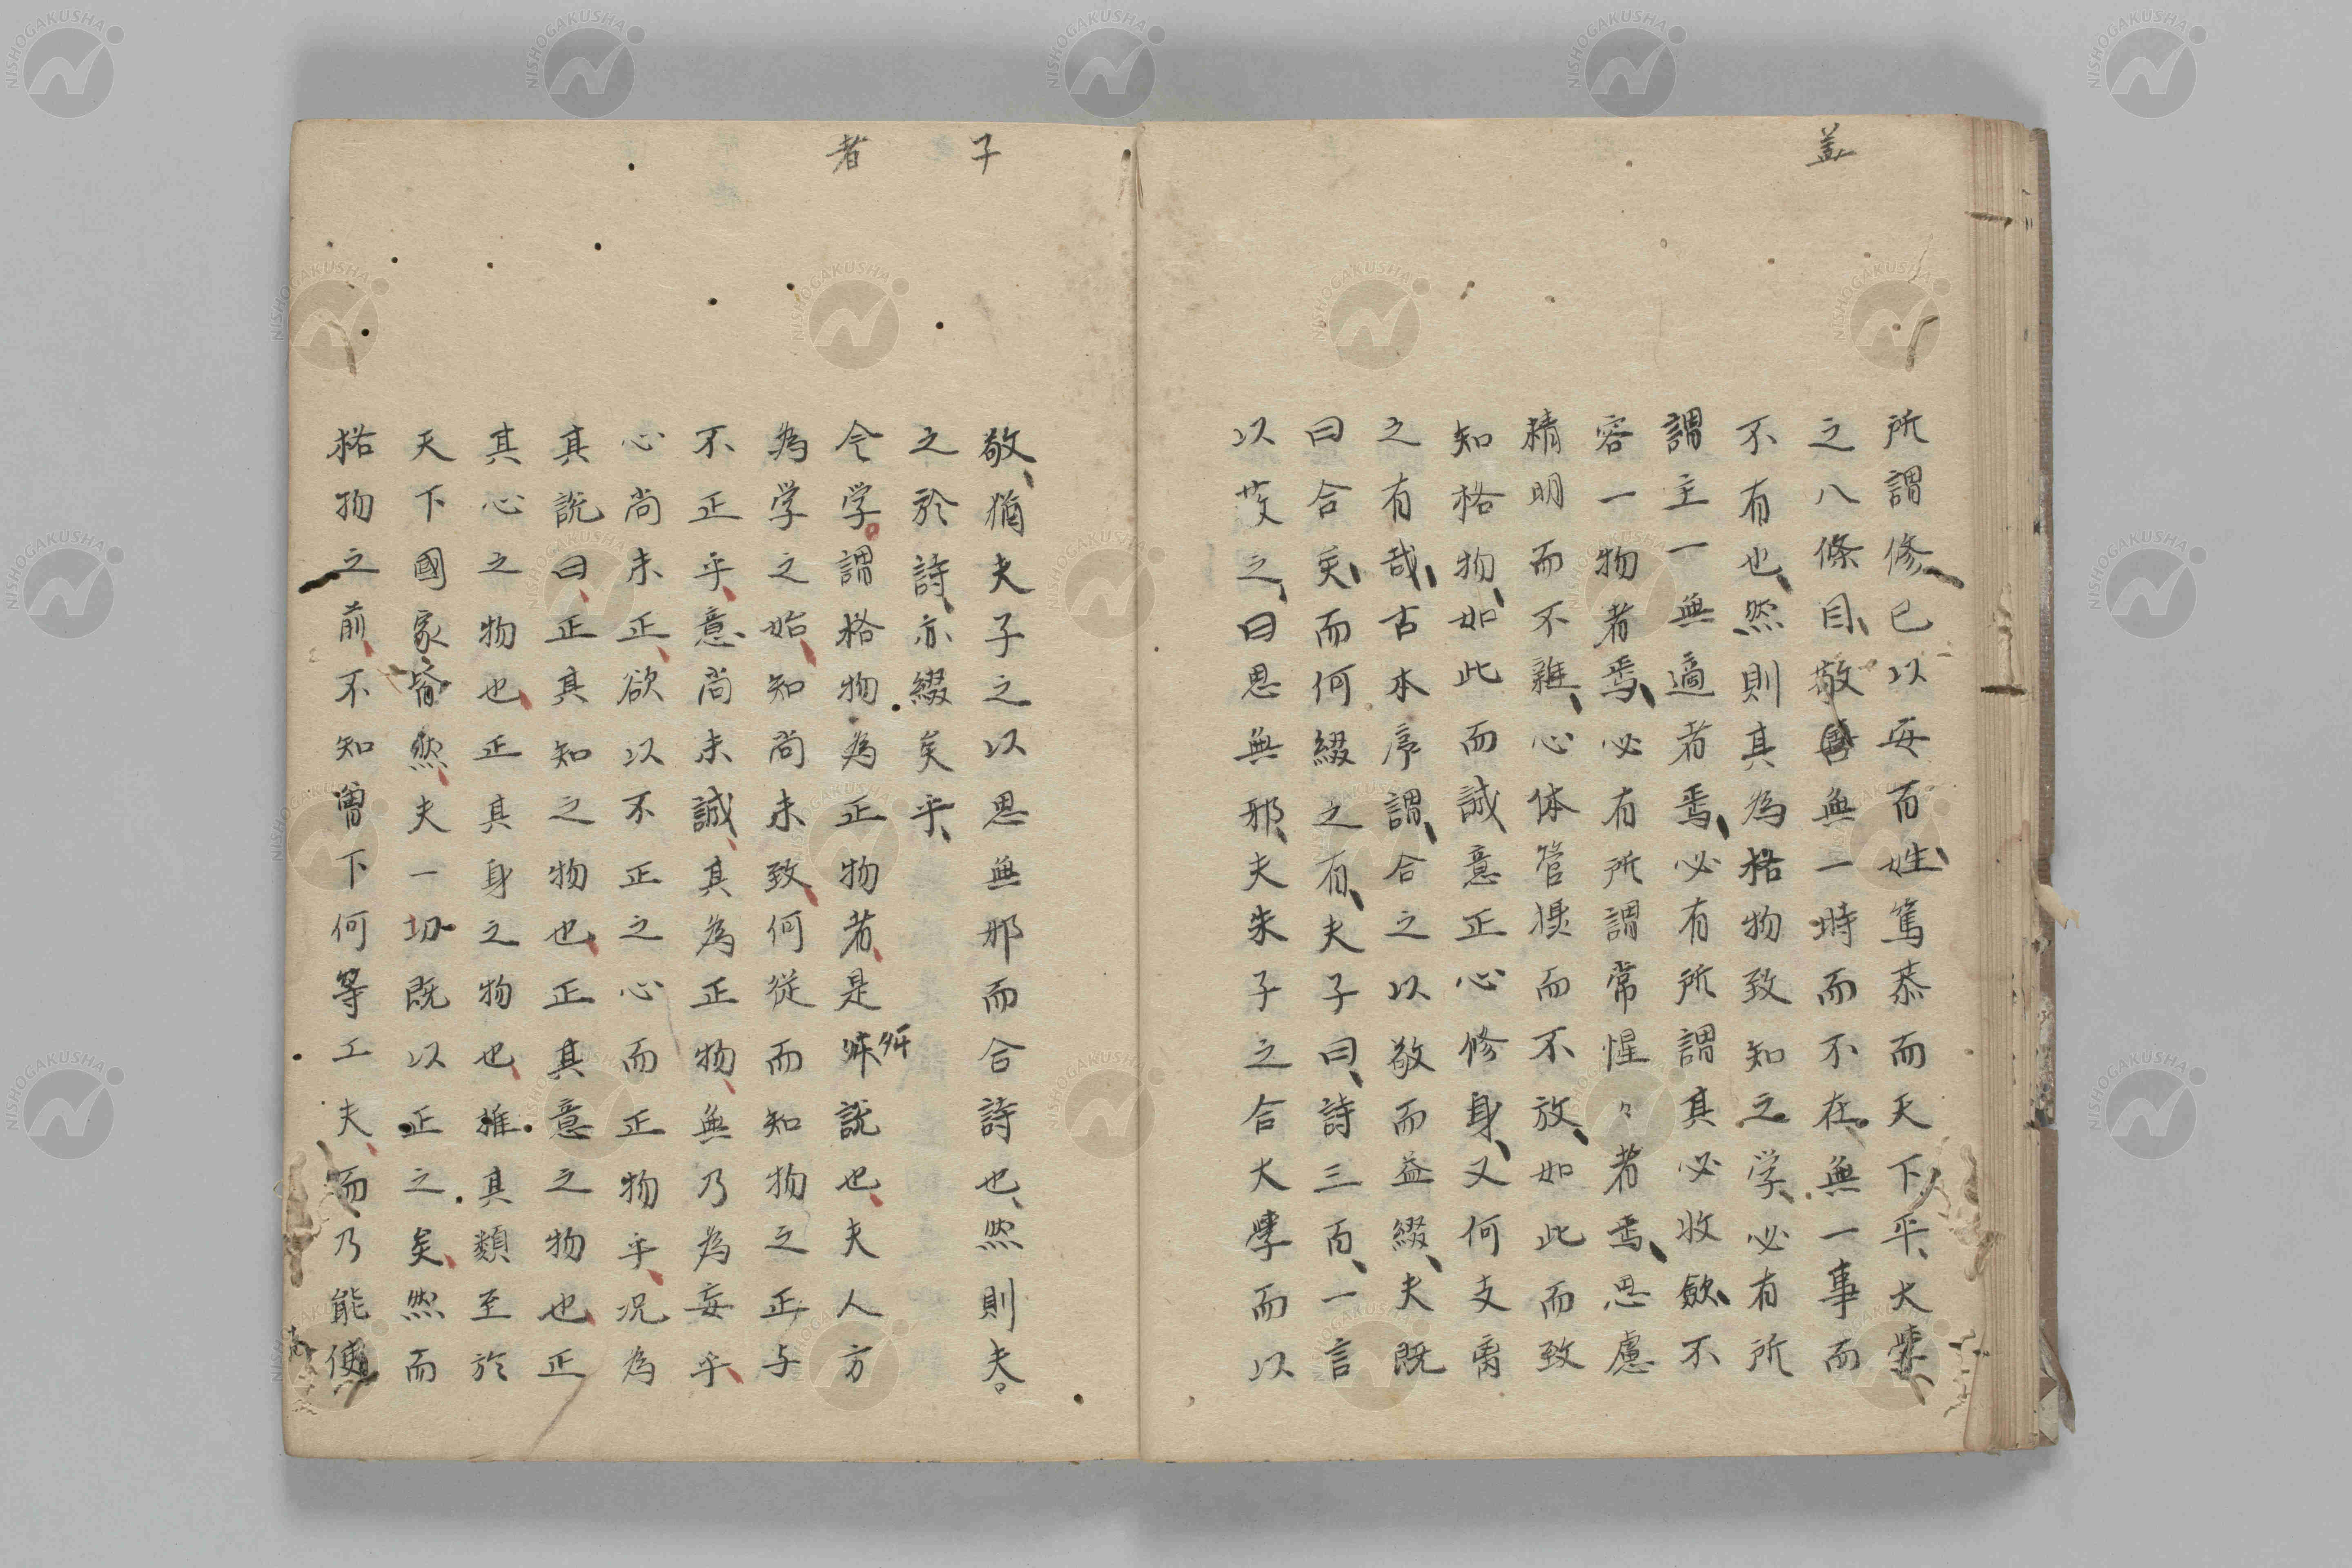 盖
所謂修己以安百姓篤恭而天下平大學
之八條目敬無一時而不在無一事而
不有也然則其為格物致知之学必有所
謂主一無適者焉必有所謂其必收歛不
容一物者焉必有所謂常惺々者焉思慮
精明而不雜心体管攝而不放如此而致
知格物如此而誠意正心修身又何支离
之有哉古本序謂合之以敬而益綴夫既
曰合矣而何綴之有夫子曰詩三百一言
以蔽之曰思無邪夫朱子之合大學而以
子
者
敬猶夫子之以思無邪而合詩也然則夫
之於詩亦綴矣乎
今学謂格物為正物者是説也夫人方
為学之始知尚未致何從而知物之正与
不正乎意尚未誠其為正物無乃為妄乎
心尚未正欲以不正之心而正物乎况為
其説曰正其知之物也正其意之物也正
其心之物也正其身之物也推其類至於
天下國家皆然夫一切既以正之矣然而
格物之前不知曽下何等工夫而乃能